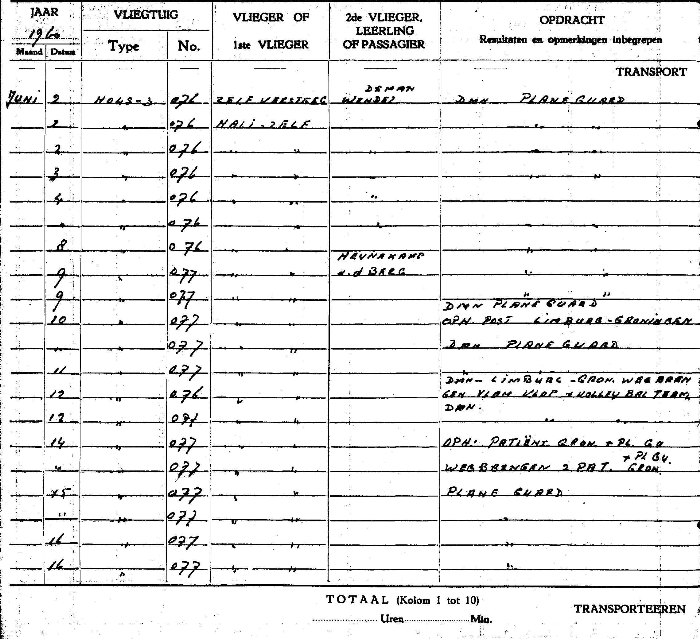 JAAR VLIEGTUIG VLIEGER OF 2de VLIEGER, OPDRACHT
1960 LEERLING
Maand Datum Type No. 1ste VLIEGER OF PASSAGIER Resultaten en opmerkingen inbegrepen
TRANSPORT
DEMAN
JUNI 2 HO4S-3 076 ZELF VERSTEEG WENDEL DMN PLANE GUARD
2 " 076 HALI-ZELF " "
2 " 076 " " " " "
3 " 076 " " " "
4 " 076 " " "
" " 076 " " " " "
8 " 076 " " " "
HEYNAKAMP
9 " 077 " " v.d BERG " "
9 " 077 " " " "
DMN PLANE GUARD
10 " 077 " " OPH POST LIMBURG-GRONINGEN
" " 077 " " DMN PLANE GUARD
11 " 077 " "
DMN-LIMBURG-GRON. WEG BREN
12 " 076 " " GEN VLAM VLOP + VOLLEY BAL TEAM,
DMN.
12 " 091 " "
14 " 077 " " OPH. PATIËNT GRON. + PL. GU
+ PL GU.
" " 077 " " WEGBRENGEN 2 PAT. GRON.
15 " 077 " " PLANE GUARD
" " 077 " " "
16 " 077 " " "
16 " 077 " " "
TOTAAL (Kolom 1 tot 10)
Uren Min. TRANSPORTEEREN